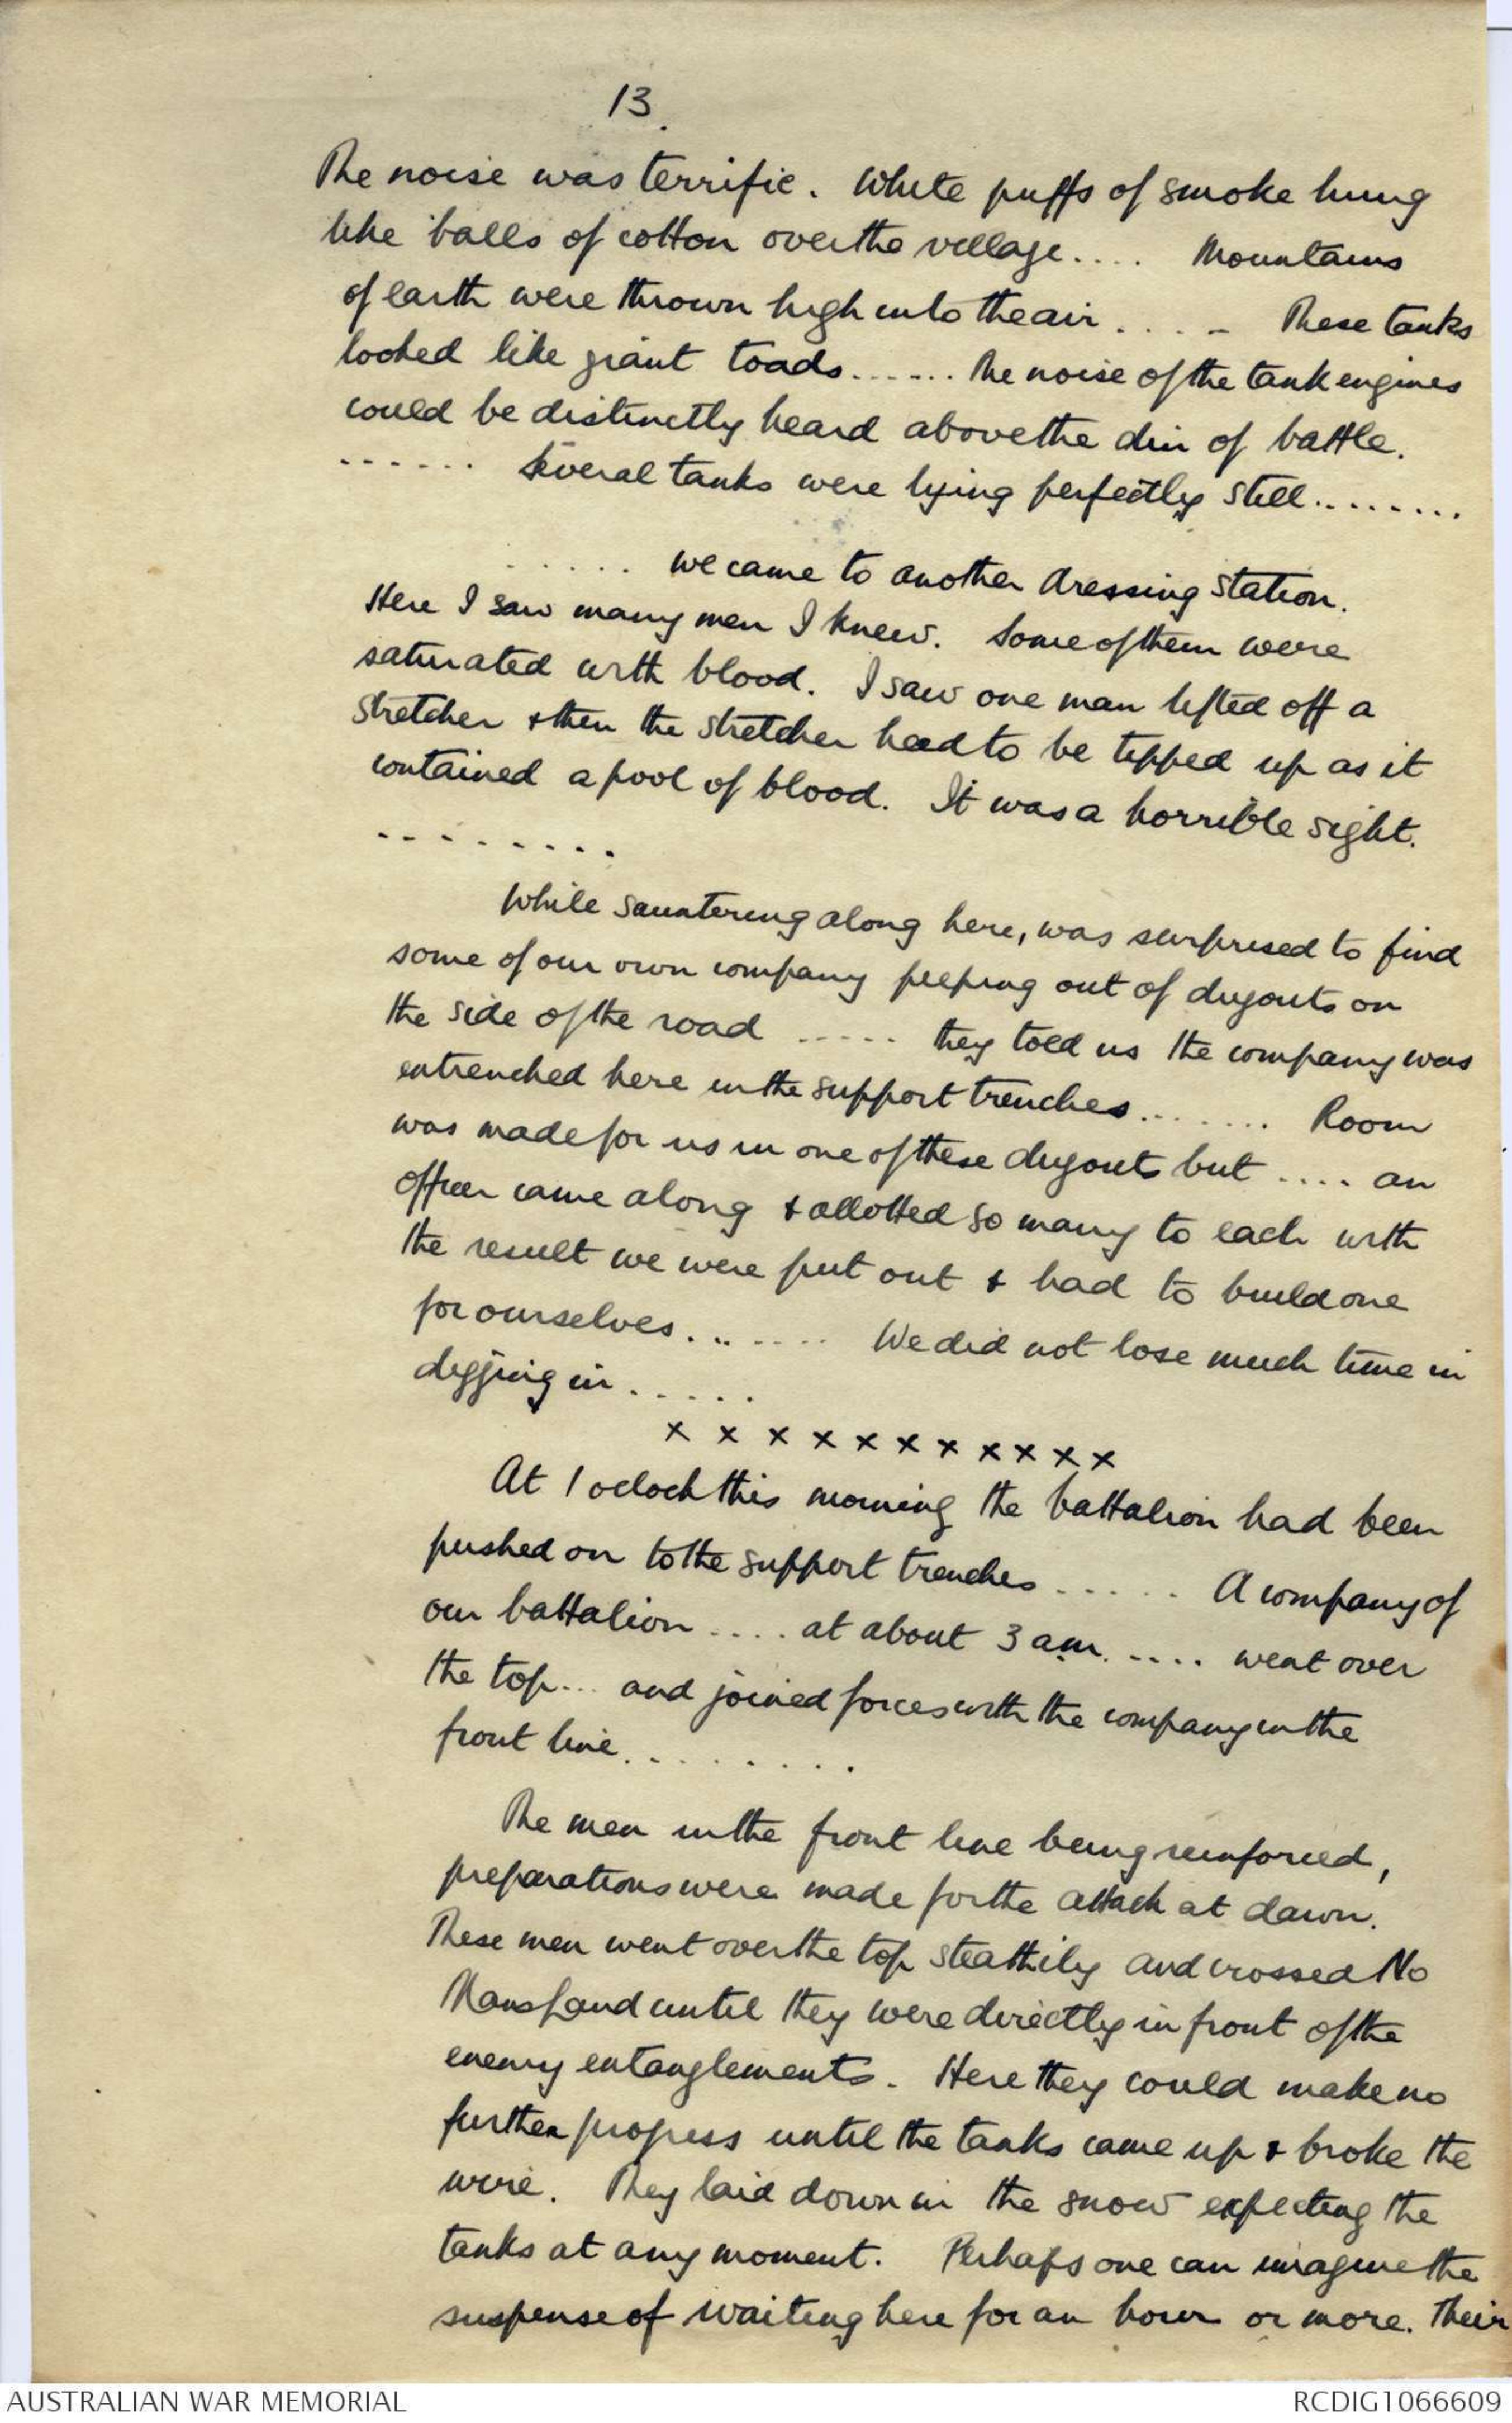 13.
The noise was terrific. White puffs of smoke hung
like balls of cotton over the village.... Mountains
of earth were thrown high into the air ..... These tanks
looked like giant toads....... The noise of the tank engines
could be distinctly heard above the din of battle.
...... Several tanks were lying perfectly still........
..... we came to another dressing station.
Here I saw many men I knew. Some of them were
saturated with blood. I saw one man lifted off a
stretcher & then the stretcher had to be tipped up as it
contained a pool of blood. It was a horrible sight.
........
While sauntering along here, was surprised to find
some of our own company peeping out of dugouts on
the side of the road ..... they told us the company was
entrenched here in the support trenches....... Room
was made for us in one of these dugouts but .... an
officer came along & allotted so many to each with
the result we were put out & had to build one
for ourselves....... We did not lose much time in
digging in.....
x x x x x x x x x x x
At 1 oclock this morning the battalion had been
pushed on to the support trenches ..... A company of
our battalion .... at about 3 am ..... went over
the top... and joined forces with the company in the
front line.........
The men in the front line being reinforced,
preparations were made for the attack at dawn.
These men went over the top stealthily and crossed No
Mans Land until they were directly in front of the
enemy entanglements. Here they could make no
further progress until the tanks came up & broke the
wire. They laid down in the snow expecting the
tanks at any moment. Perhaps one can imagine the
suspense of waiting here for an hour or more. Their
AUSTRALIAN WAR MEMORIAL
RCDIG1066609